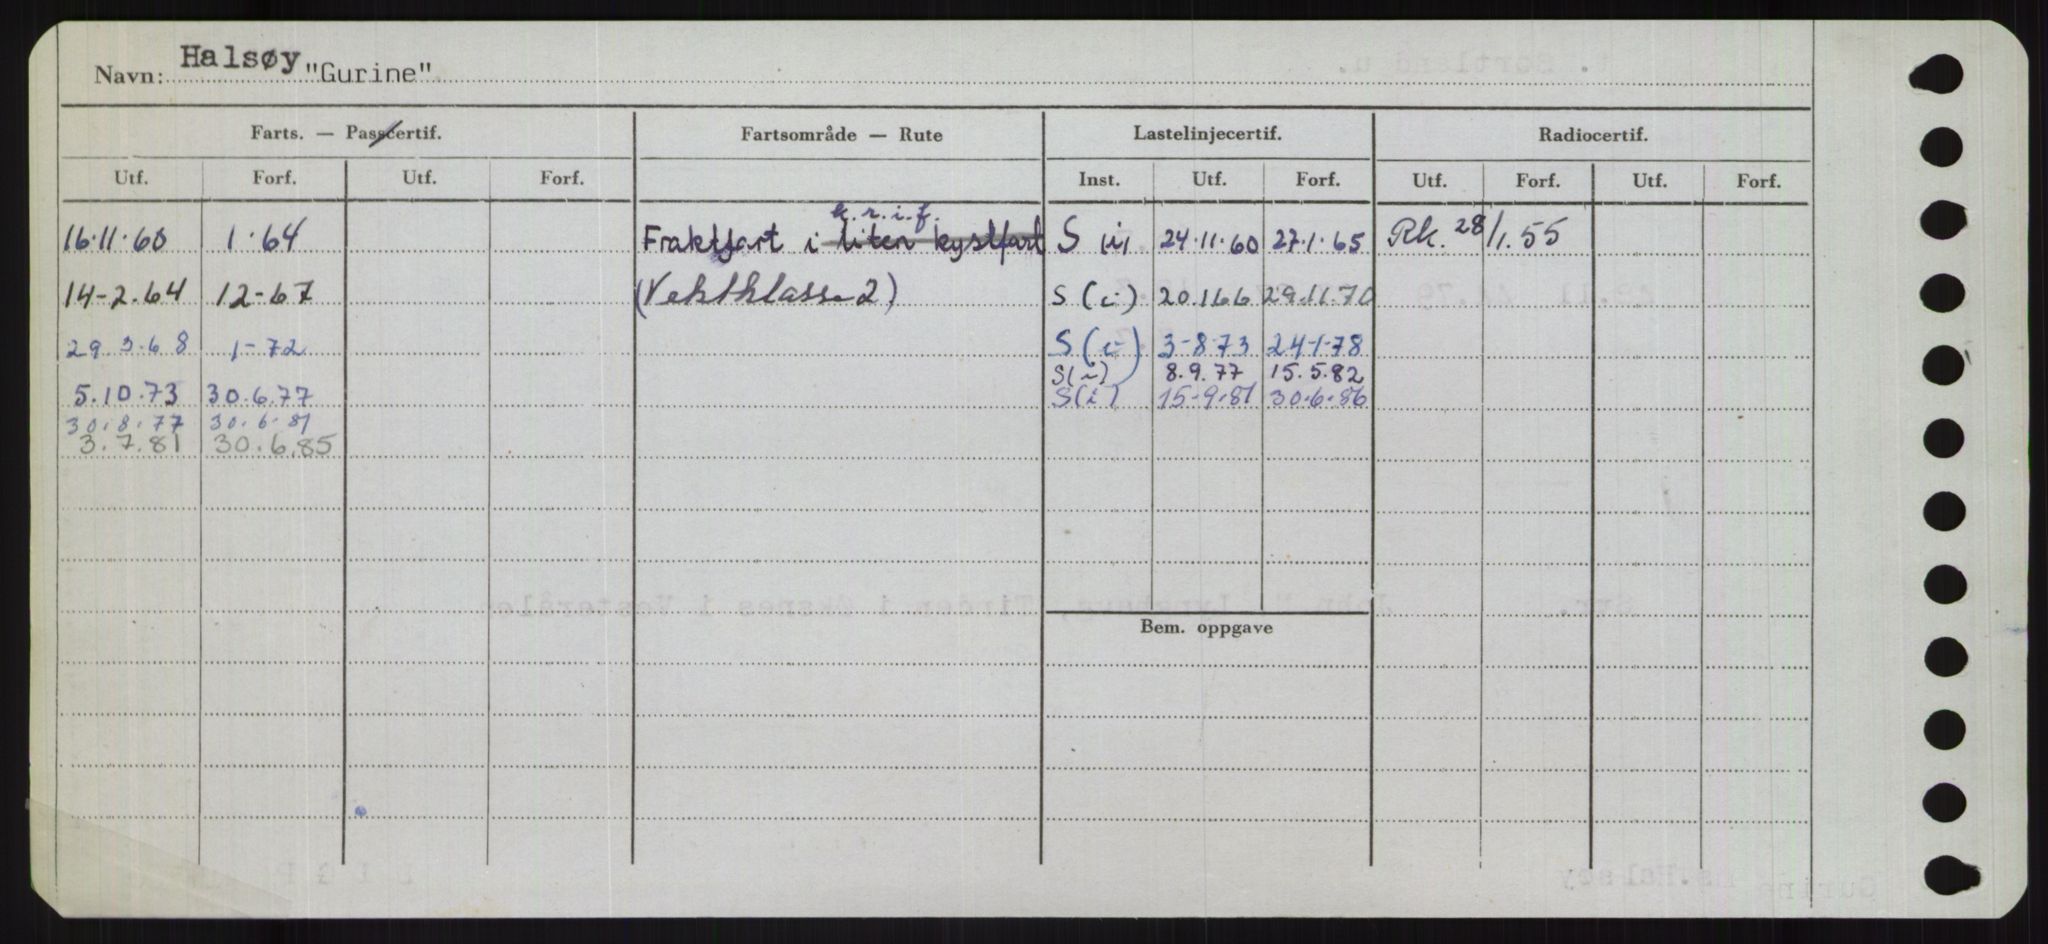 Navn: Halsøy "Gurine"
Farts. — Passcertif. Fartsområde — Rute Lastelinjecertif. Radiocertif.
Utf. Forf. Utf. Forf. Inst. Utf. Forf. Utf. Forf. Utf. Forf.
k.r.i.f.
16.11.60 1.64 Fraktfart i liten kystfart S (i) 24.11.60 27.1.65 Rk. 28/1.55
14-2.64 12-67 (Vektklasse 2) S (i) 20.1.66 29.11.70
29.3.68 1-72 S (i) 3-8-73 24-1-78
S(i) 8.9.77 15.5.82
5.10.73 30.6.77 S(i) 15-9.81 30.6.86
30.8.77 30.6.81
3.7.81 30.6.85
Bem. oppgave